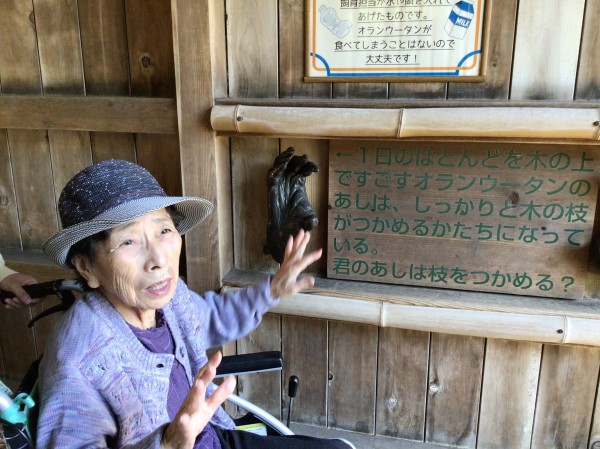 飼育担当が水や餌を入れて
あげたものです。
オランウータンが
食べてしまうことはないので
大丈夫です！
MILK
←１日のほとんどを木の上
ですごすオランウータンの
あしは、しっかりと木の枝
がつかめるかたちになって
いる。
君のあしは枝をつかめる？